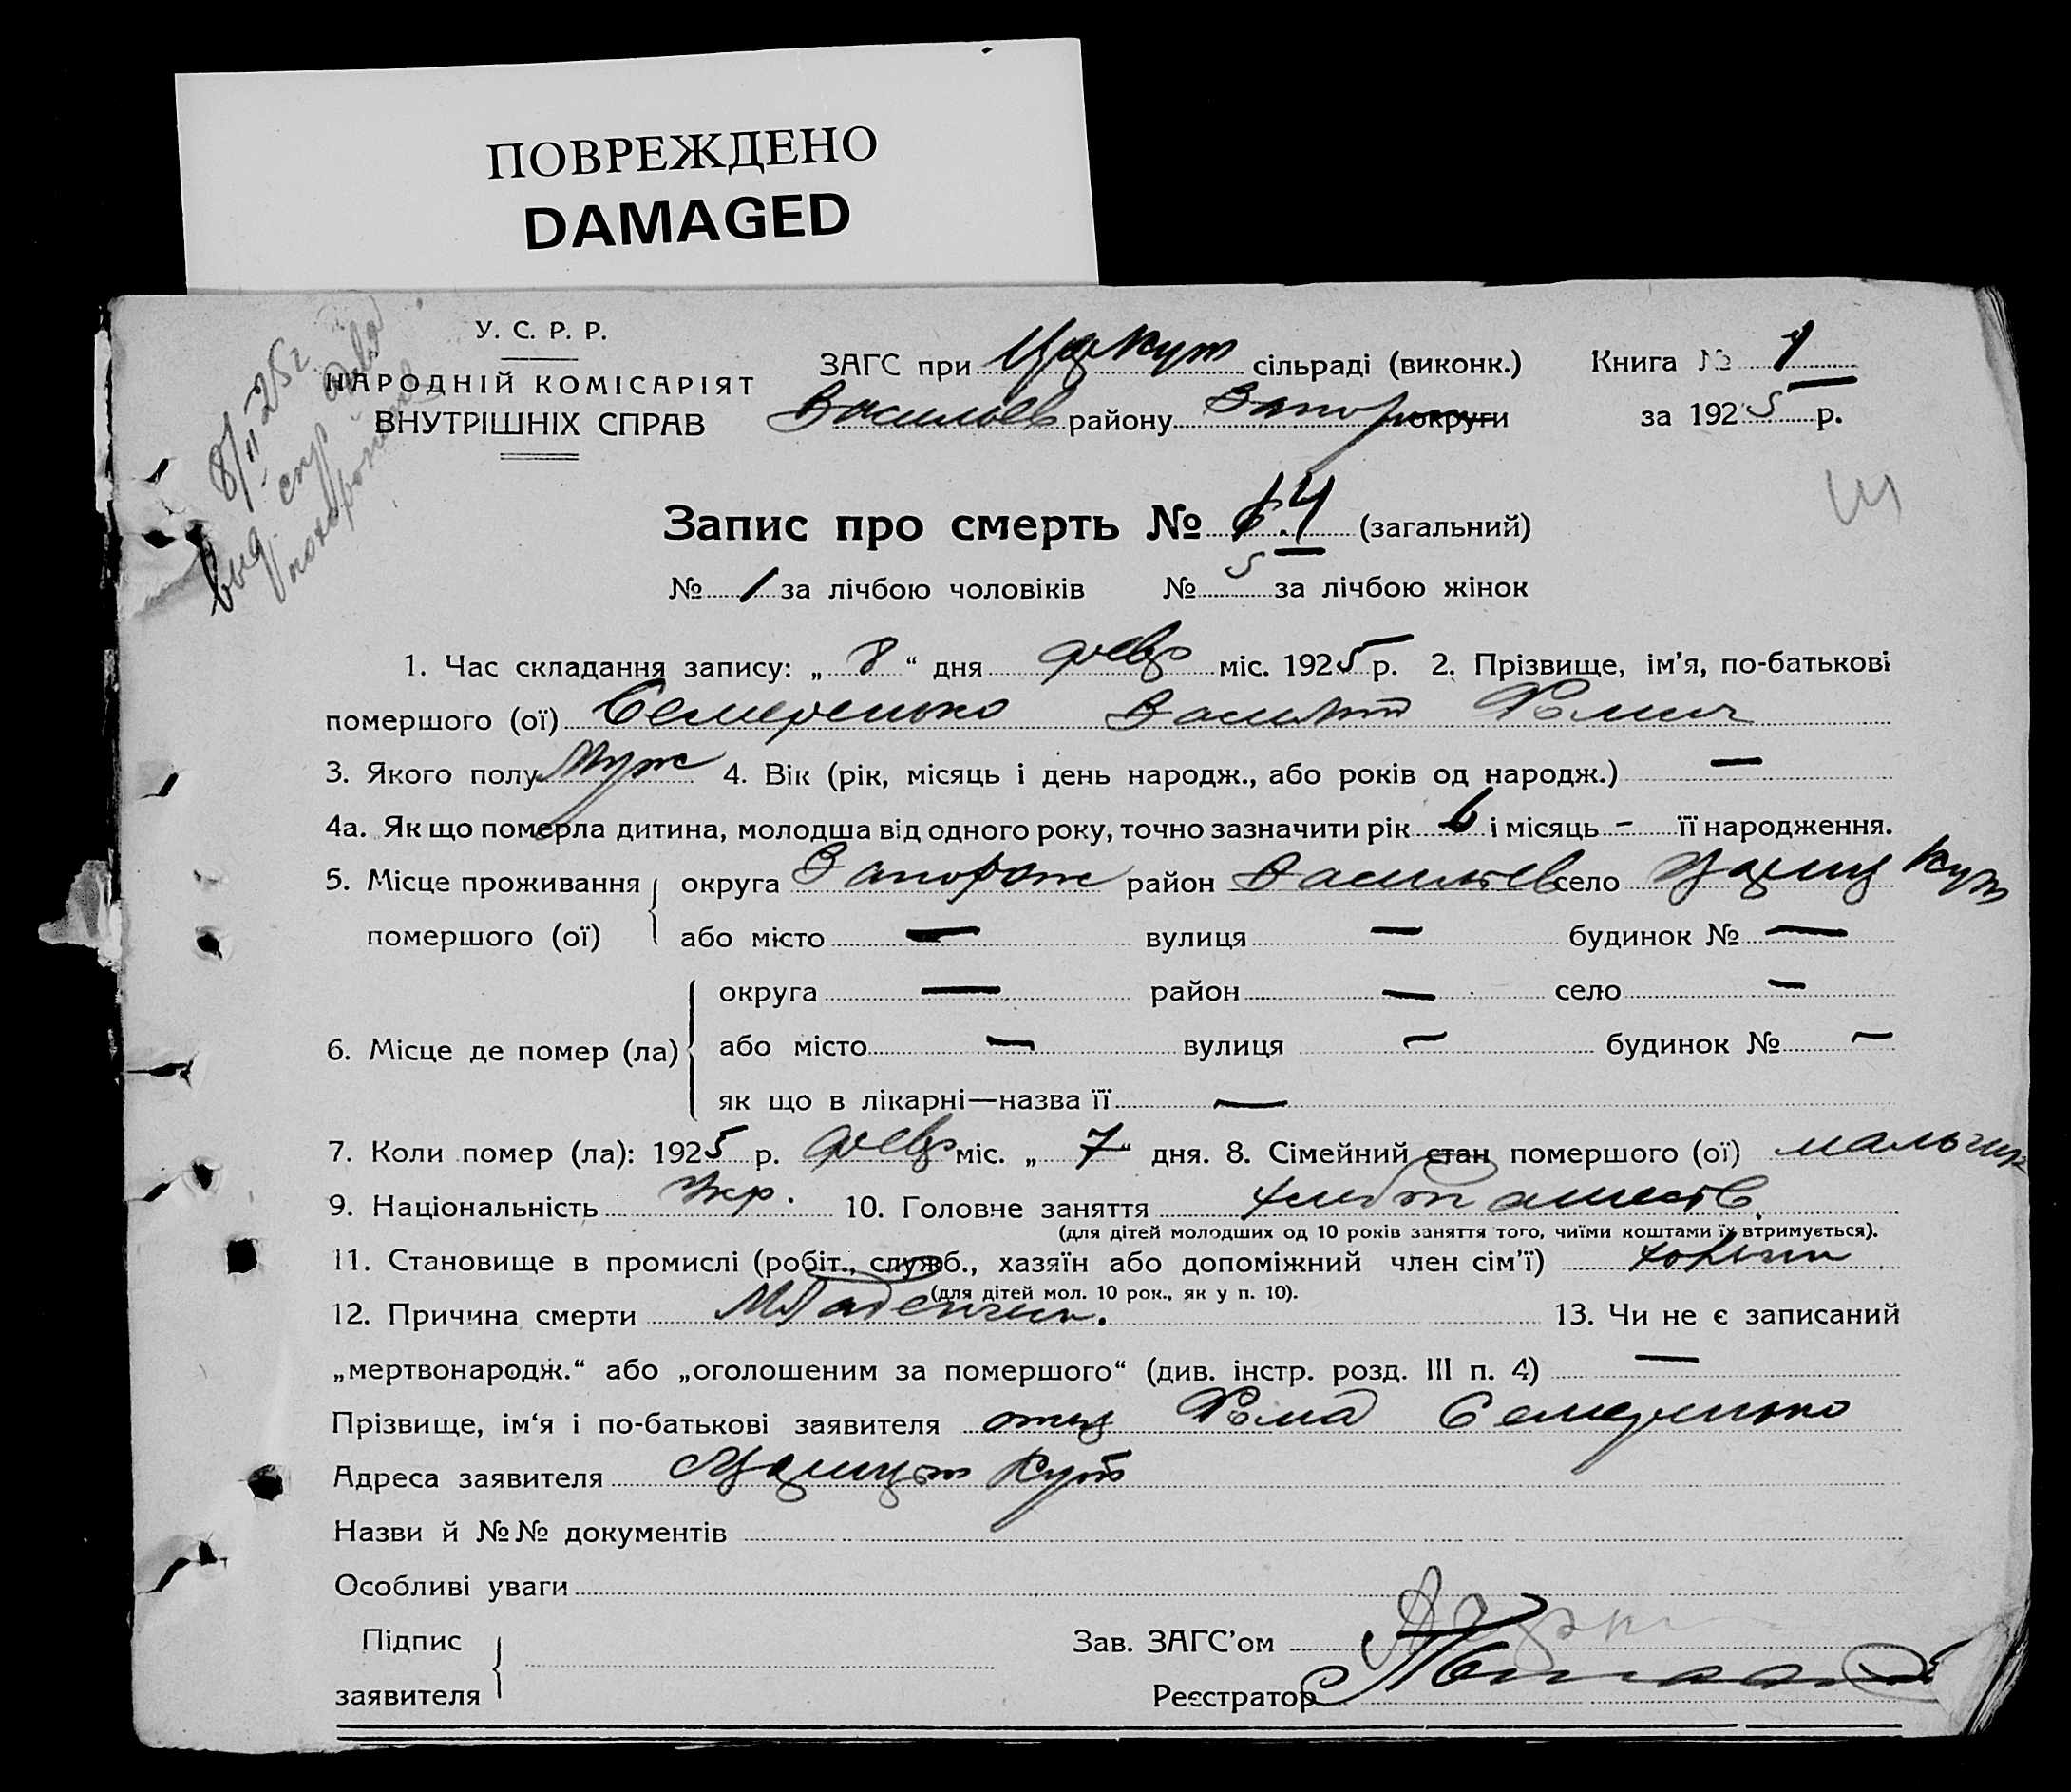 ПОВРЕЖДЕНО
DAMAGED
8/II 25 г
выд. спр
похорон
У. С. Р. Р.
НАРОДНІЙ КОМІСАРІЯТ
ВНУТРІШНІХ СПРАВ
ЗАГС при сільраді (виконк.)
Васильев району Запор округи
Книга № 1
за 1925 р.
Запис про смерть № 4 (загальний)
№ 1 за лічбою чоловіків № за лічбою жінок
1. Час складання запису: „ 8 “ дня февр міс. 1925 р. 2. Прізвище, ім’я, по-батькові
помершого (ої) Семеренько Василий Фомич
3. Якого полу муж 4. Вік (рік, місяць і день народж., або років од народж.) —
4а. Як що померла дитина, молодша від одного року, точно зазначити рік 6 і місяць - її народження.
5. Місце проживання помершого (ої) округа Запорож район Васильев село Кут
або місто — вулиця — будинок № —
6. Місце де помер (ла) округа — район — село —
або місто — вулиця — будинок № —
як що в лікарні—назва її —
7. Коли помер (ла): 1925 р. февр міс. „ 7 “ дня. 8. Сімейний стан помершого (ої) мальчик
9. Національність Укр. 10. Головне заняття
(для дітей молодших од 10 років заняття того, чиїми коштами їх втримується).
11. Становище в промислі (робіт., служб., хазяїн або допоміжний член сім’ї)
(для дітей мол. 10 рок., як у п. 10).
12. Причина смерти Младенчик. 13. Чи не є записаний
„мертвонародж.“ або „оголошеним за помершого“ (див. інстр. розд. III п. 4) —
Прізвище, ім‘я і по-батькові заявителя отец Фома Семеренько
Адреса заявителя Кут
Назви й №№ документів
Особливі уваги
Підпис заявителя
Зав. ЗАГС’ом
Реєстратор